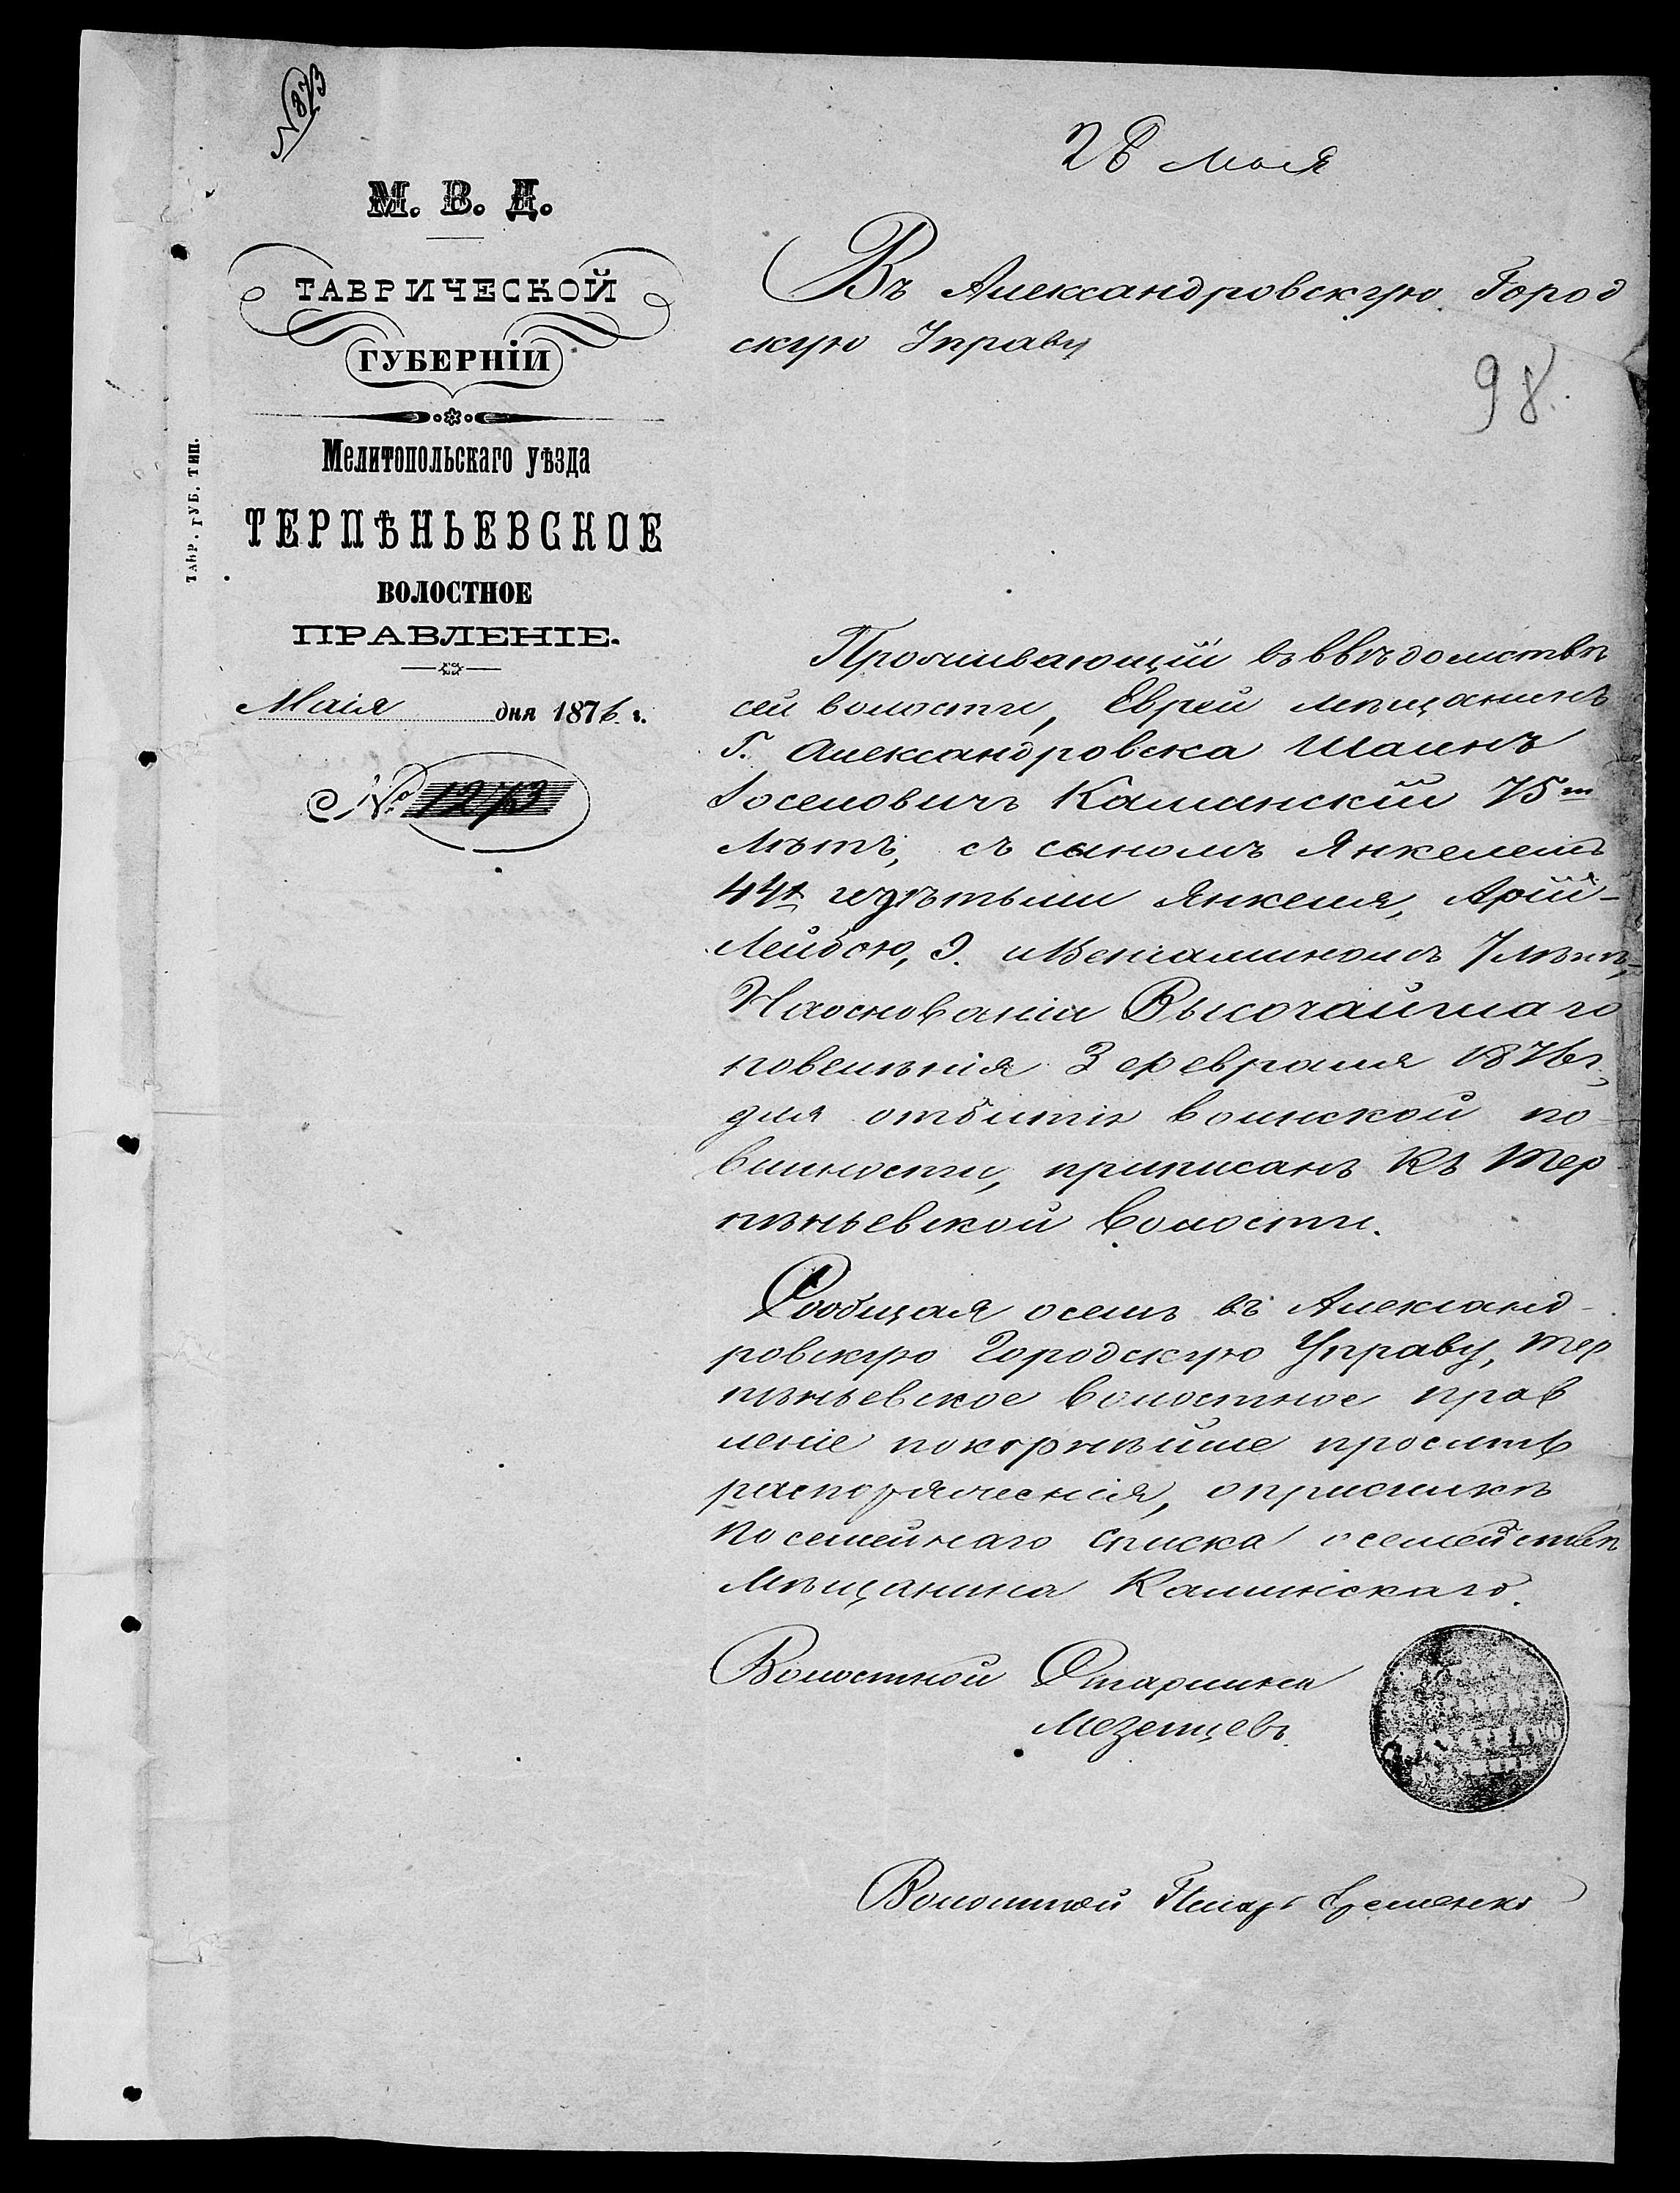 № 873
М. В. Д.
ТАВРИЧЕСКОЙ
ГУБЕРНІИ
Мелитопольскаго уѣзда
ТЕРПѢНЬЕВСКОЕ
ВОЛОСТНОЕ
ПРАВЛЕНІЕ.
Маія дня 1876 г.
№ 1273
ТАВР. ГУБ. ТИП.
28 мая
Въ Александровскую Город
скую Управу
98.
Проживающій въ ввѣдомствѣ
сей волости, Еврей мѣщанинъ
г. Александровска Шаинъ
Іоселовичъ Каминскій 75ти
лѣтъ, съ сыномъ Янкелемъ
44х дѣтьми Янкеля, Арій-
Лейбою, 9. и Веніаминомъ 7 лѣтъ,
На основаніи Высочайшаго
повелѣнія 3 февраля 1876 г.,
для отбытія воинской по-
винности, приписанъ къ Тер
пѣньевской волости.
Сообщая о семъ въ Александ-
ровскую Городскую Управу, Тер
пѣньевское волостное прав
леніе покорнѣйше проситъ
распоряженія, о присылкѣ
посемейнаго списка о семействѣ
Мѣщанина Каминскаго.
Волостной Старшина
Мезенцевъ
Волостной Писарь Еременко